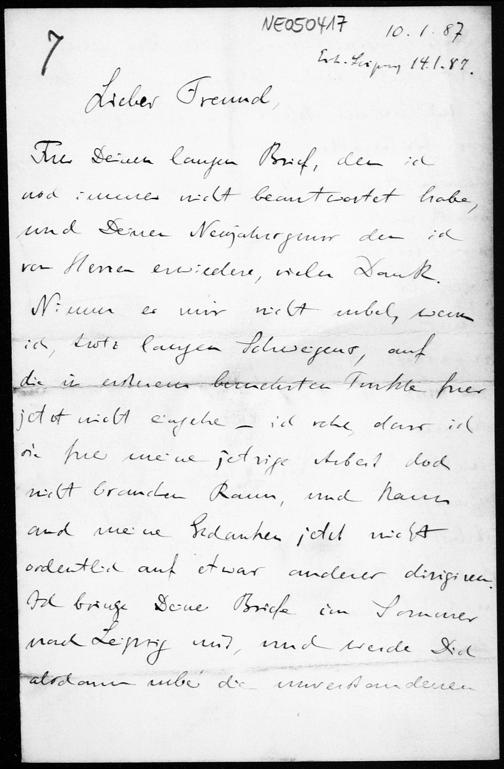 NE050417
10.1.87
Erh. Leipzig 14.1.87.
7
Lieber Freund,
Fuer Deinen langen Brief, den ich
noch immer nicht beantwortet habe,
und Deinen Neujahrsgruss den ich
von Herzen erwiedere, vielen Dank.
Nimm es mir nicht uebel, wenn
ich, trotz langen Schweigens, auf
die in ersterem beruehrten Punkte fuer
jetzt nicht eingehe – ich sehe, dass ich
sie fuer meine jetzige Arbeit doch
nicht brauchen kann, und kann
auch meine Gedanken jetzt nicht
ordentlich auf etwas anderes dirigiren.
Ich bringe Deine Briefe im Sommer
nach Leipzig mit, und werde Dich
alsdann ueber die unverstandenen